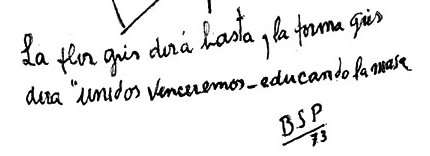 La flor gris dirá basta, la forma gris
dira "unidos venceremos-educando la masa
BSP
73